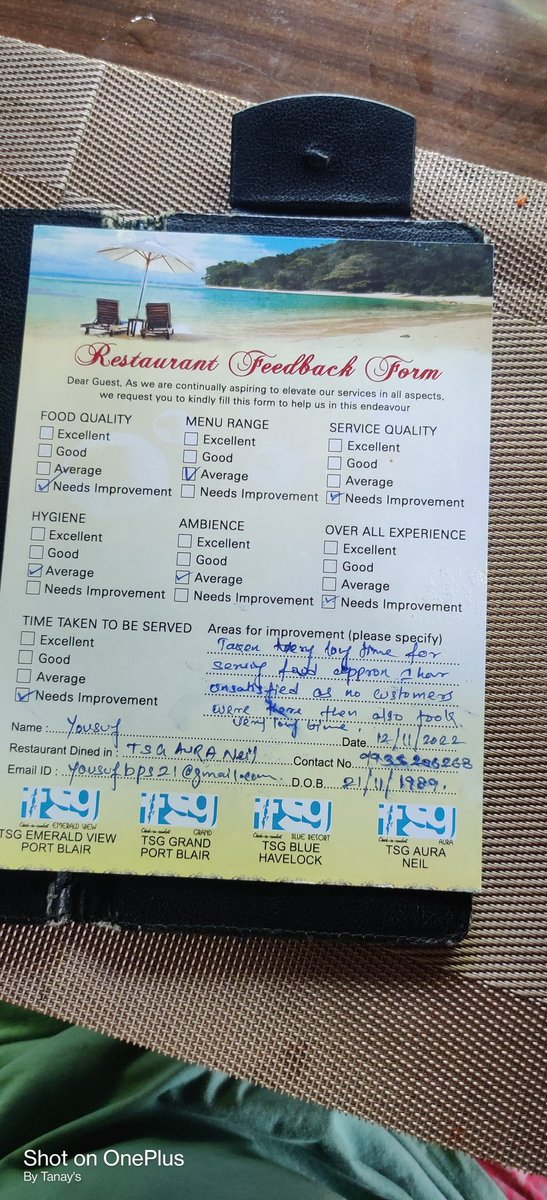 Restaurant Feedback Form
Dear Guest, As we are continually aspiring to elevate our services in all aspects,
we request you to kindly fill this form to help us in this endeavour
FOOD QUALITY
Excellent
Good
Average
Needs Improvement
MENU RANGE
Excellent
Good
Average
Needs Improvement
SERVICE QUALITY
Excellent
Good
Average
Needs Improvement
HYGIENE
Excellent
Good
Average
Needs Improvement
AMBIENCE
Excellent
Good
Average
Needs Improvement
OVER ALL EXPERIENCE
Excellent
Good
Average
Needs Improvement
TIME TAKEN TO BE SERVED
Excellent
Good
Average
Needs Improvement
Areas for improvement (please specify)
Taken very long time for
serving food approx 1 hour
unsatisfied as no customers
were there then also took
very long time.
Name : Yousuf
Date 12/11/2022
Restaurant Dined in : TSG AURA Neil
Contact No
Email ID : yousuf.bps21@gmail.com
D.O.B. 21/11/1989.
tsg
EMERALD VIEW
TSG EMERALD VIEW
PORT BLAIR
tsg
GRAND
TSG GRAND
PORT BLAIR
tsg
BLUE RESORT
TSG BLUE
HAVELOCK
tsg
AURA
TSG AURA
NEIL
Shot on OnePlus
By Tanay's